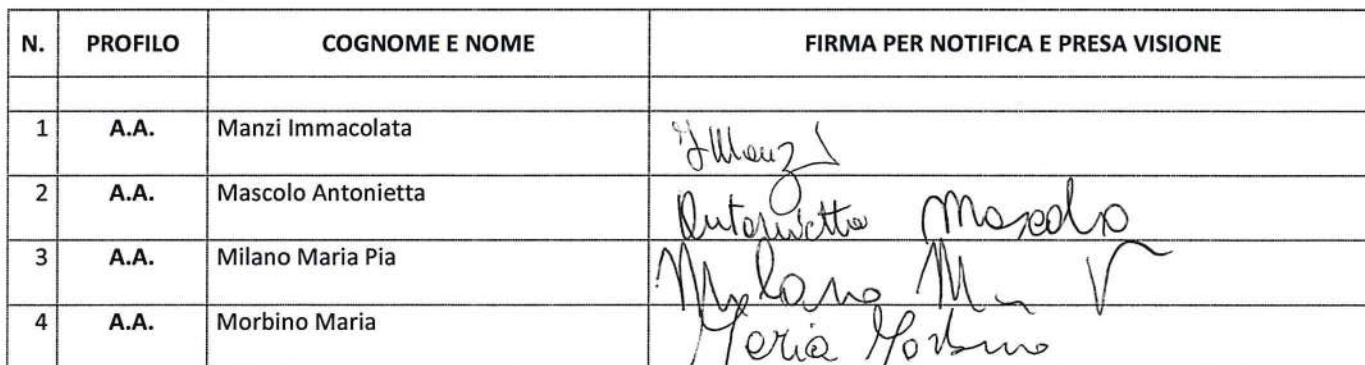 N. PROFILO COGNOME E NOME FIRMA PER NOTIFICA E PRESA VISIONE
1 A.A. Manzi Immacolata I Manzi
2 A.A. Mascolo Antonietta Antonietta Mascolo
3 A.A. Milano Maria Pia Milano M
4 A.A. Morbino Maria Maria Morbino